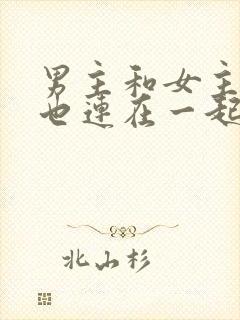 男主和女主
也连在一起
北山杉